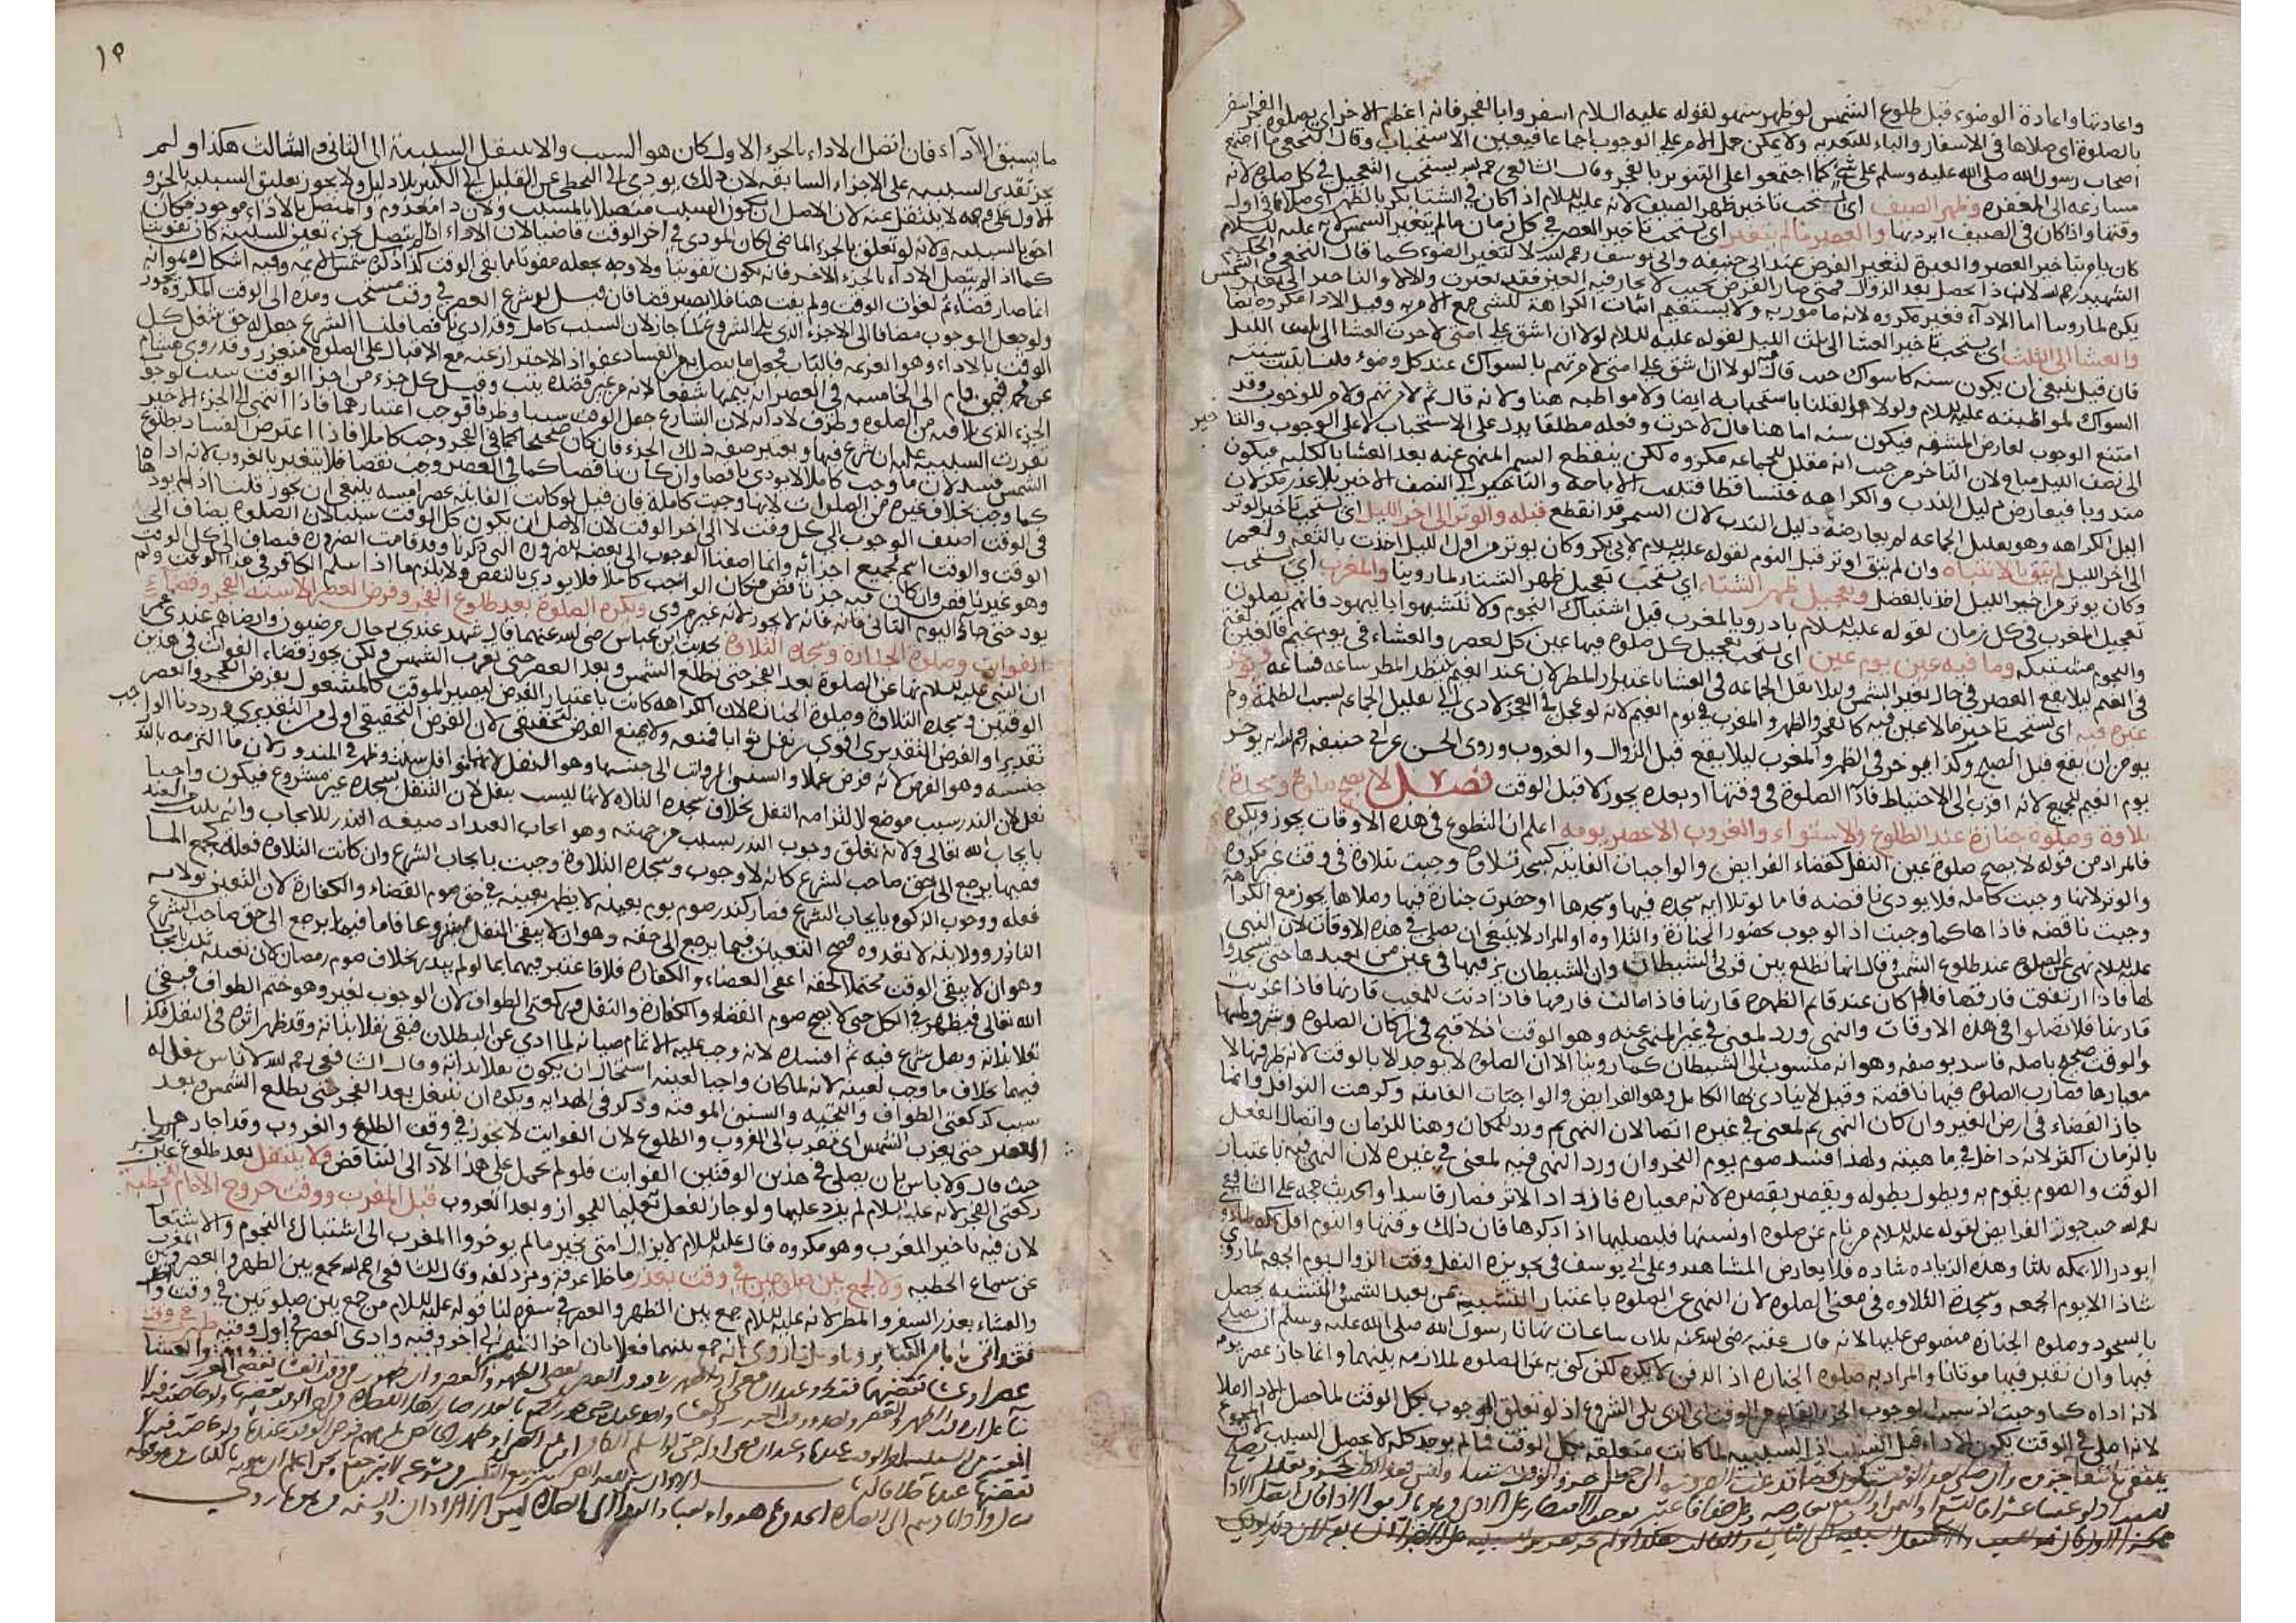 واعادتها واعادة الوضوء قبل طلوع الشمس لو ظهر سهو لقوله عليه السلام اسفروا بالفجر فانه اعظم للاجر اي بصلوة الفجر اسفر
بالصلوة اي صلاها في الاسفار والباء للتعدية ولا يمكن حمل الامر على الوجوب اجماعا فيتعين الاستحباب وقال النخعي ما اجتمع
اصحاب رسول الله صلى الله عليه وسلم على شيء كما اجتمعوا على التنوير بالفجر وقال الشافعي رحمه الله يستحب التعجيل في كل صلوة لانه
مسارعة الى المغفرة وظهر الصيف اي يستحب تاخير ظهر الصيف لانه عليه السلام اذا كان في الشتاء بكر بالظهر اي صلاها في اول
وقتها واذا كان في الصيف ابرد بها والعصر ما لم يتغير اي يستحب تاخير العصر في كل زمان ما لم يتغير الشمس لانه عليه السلام
كان يامر بتاخير العصر والعبرة لتغير القرص عند ابي حنيفة وابي يوسف رحمهما الله لا لتغير الضوء كما قال النخعي والحاكم
الشهيد رحمه الله لان ذا يحصل بعد الزوال فمتى صار القرص بحيث لا يحار فيه العين فقد تغيرت والا لا والتاخير الى تغير الشمس
يكره لما روينا اما الاداء فغير مكروه لانه مامور به ولا يستقيم اثبات الكراهة للشيء مع الامر به وقيل الاداء مكروه ايضا
والعشا الى الثلث اي يستحب تاخير العشا الى ثلث الليل لقوله عليه السلام لولا ان اشق على امتي لاخرت العشا الى ثلث الليل
فان قيل ينبغي ان يكون سنة كالسواك حيث قال فيه لولا ان اشق على امتي لامرتهم بالسواك عند كل وضوء قلنا ثبتت سنية
السواك لمواظبته عليه السلام ولولاها لقلنا باستحبابه ايضا ولا مواظبة هنا ولانه قال ثم لامرتهم والامر للوجوب وقد
امتنع الوجوب لعارض المشقة فيكون سنة اما هنا قال لاخرت وفعله مطلقا يدل على الاستحباب لا على الوجوب والتاخير
الى نصف الليل مباح لان التاخير من حيث انه تقليل للجماعة مكروه لكن ينقطع السمر المنهي عنه بعد العشا بالكلية فيكون
مندوبا فيعارض دليل الندب والكراهة فتساقطا فثبت الاباحة والتاخير الى النصف الاخير بلا عذر مكروه لان
الدليل الكراهة وهو تقليل الجماعة لم يعارضه دليل الندب لان السمر قد انقطع قبله والوتر الى اخر الليل اي يستحب تاخير الوتر
الى اخر الليل لمن يثق بالانتباه وان لم يثق اوتر قبل النوم لقوله عليه السلام لابي بكر وكان يوتر من اول الليل اخذت بالثقة ولعمر
وكان يوتر من اخر الليل اخذ بالفضل وتعجيل ظهر الشتاء اي يستحب تعجيل ظهر الشتاء لما روينا والمغرب اي يستحب
تعجيل المغرب في كل زمان لقوله عليه السلام بادروا بالمغرب قبل اشتباك النجوم ولا تتشبهوا باليهود فانهم يصلون
والنجوم مشتبكة وما فيه عين يوم غين اي يستحب تعجيل كل صلوة فيها عين كالعصر والعشاء في يوم غيم
في الغيم ليلا يقع العصر في حال تغير الشمس وليلا تقل الجماعة في العشا باعتبار المطر لان عند الغيم ينتظر المطر ساعة فساعة ويوخر
غيره فيه اي يستحب تاخير ما لا عين فيه كالفجر والظهر والمغرب في يوم الغيم لانه لو عجل في الفجر لادى الى تقليل الجماعة بسبب الظلمة ولم
يومن ان يقع قبل الصبح وكذا يوخر في الظهر والمغرب ليلا يقع قبل الزوال والغروب وروى الحسن عن ابي حنيفة رحمه الله انه يوخر
يوم الغيم الجميع لانه اقرب الى الاحتياط فاداء الصلوة في وقتها او بعده يجوز لا قبل الوقت فصل لا يصح صلوة وسجدة
تلاوة وصلوة جنازة عند الطلوع والاستواء والغروب الا عصر يومه اعلم ان التطوع في هذه الاوقات يجوز ويكره
فالمراد من قوله لا يصح صلوة عين النفل كقضاء الفرايض والواجبات الفايتة كسجدة تلاوة وجبت بتلاوة في وقت غير مكروه
والوتر لانها وجبت كاملة فلا يودى ناقصة فاما لو تلا اية سجدة فيها وسجدها او حضرت جنازة فيها وصلاها يجوز مع الكراهة
وجبت ناقصة فاداها كما وجبت اذ الوجوب بحضور الجنازة والتلاوة او المراد لا ينبغي ان يصلى في هذه الاوقات لان النبي
عليه السلام نهى عن الصلوة عند طلوع الشمس وقال انها تطلع بين قرني الشيطان وان الشيطان يزينها في عين من يعبدها حتى يسجدوا
لها فاذا ارتفعت فارقها فاذا كان عند قايم الظهيرة قارنها فاذا مالت فارقها فاذا دنت للمغيب قارنها فاذا غربت
فارقها فلا تصلوا في هذه الاوقات والنهي ورد لمعنى في غير المنهي عنه وهو الوقت اذ لا قبح في اركان الصلوة وشروطها
والوقت صحيح باصله فاسد بوصفه وهو انه منسوب الى الشيطان كما روينا الا ان الصلوة لا يوجد الا بالوقت لانه ظرفها لا
معيارها فصارت الصلوة فيها ناقصة وقيل لا يتادى بها الكامل وهو الفرايض والواجبات الفايتة وكرهت النوافل وانما
جاز القضاء في ارض الغير وان كان النهي ثم لمعنى في غيره اتصالا لان النهي ثم ورد للمكان وهنا للزمان واتصال الفعل
بالزمان اكثر لانه داخل في ماهيته ولهذا فسد صوم يوم النحر وان ورد النهي فيه لمعنى في غيره لان النهي فيه باعتبار
الوقت والصوم يقوم به ويطول بطوله ويقصر بقصره لانه معياره فازداد الاثر فصار فاسدا والحديث حجة على الشافعي
رحمه الله حيث جوز الفرايض لقوله عليه السلام من نام عن صلوة او نسيها فليصليها اذا ذكرها فان ذلك وقتها
الا بمكة ثلثا وهذه الزيادة شاذة فلا يعارض المشاهير وعلى ابي يوسف في تجويزه النفل وقت الزوال يوم الجمعة لما روي
شاذا الا يوم الجمعة وسجدة التلاوة في معنى الصلوة لان النهي عن الصلوة باعتبار التشبيه بمن يعبد الشمس والتشبيه يحصل
بالسجود وصلوة الجنازة منصوص عليها لانه قال عقبة رضي الله عنه ثلاث ساعات نهانا رسول الله صلى الله عليه وسلم ان نصلي
فيها وان نقبر فيها موتانا والمراد به صلوة الجنازة اذ الدفن لا يكره لكن كني به عن الصلوة لملازمة بينهما وانما جاز عصر يومه
لانه اداه كما وجبت اذ سبب الوجوب الجزء القايم من الوقت اي الذي يلي الشروع اذ لو تعلق الوجوب بكل الوقت لما حصل الاداء
لانه اصلى في الوقت يكون الاداء قبل السبب اذ السببية لما كانت متعلقة بكل الوقت فما لم يوجد كله لا يحصل السبب
١٩
ما يسبق الاداء فان اتصل الاداء بالجزء الاول كان هو السبب والا ينتقل السببية الى الثاني والثالث هكذا ولم
يجز تقدير السببية على الاجزاء السابقة لان ذلك يودي الى التخطي عن القليل الى الكثير بلا دليل ولا يجوز تعليق السببية بالجزء
الاول على وجه لا ينتقل عنه لان الاصل ان يكون السبب متصلا بالمسبب ولان ذا معدوم والمتصل بالاداء موجود فكان
احق بالسببية ولانه لو تعلق بالجزء الماضي لكان المودي في اخر الوقت قاضيا لان الاداء اذا لم يتصل بجزء تعين للسببية كان تفويتا
كما اذا لم يتصل الاداء بالجزء الاخير فانه يكون تفويتا ولا وجه بجعله مفوتا ما بقي الوقت كذا ذكره شمس الايمة وفيه اشكال وهو انه
انما صار قضاء ثم لفوات الوقت ولم يفت هنا فلا يصير قضا فان قيل لو شرع العصر في وقت مستحب ومده الى الوقت المكروه يجوز
ولو جعل الوجوب مضافا الى الاجزاء الذي يلي الشروع لما جاز لان السبب كامل وقد ادي ناقصا قلنا الشرع جعل له حق شغل كل
الوقت بالاداء وهو العزيمة فجعل ما يتصل به من الفساد عفوا اذ الاحتراز عنه مع الاقبال على الصلوة متعذر وقد روى هشام
عن محمد فيمن قام الى الخامسة في العصر انه يتمها شفعا لانه من غير قصده يثبت وقيل كل جزء من اجزاء الوقت سبب لوجوب
الجزء الذي يلاقيه من الصلوة وظرف لادائه لان الشارع جعل الوقت سببا وظرفا فوجب اعتبارهما فاذا انتهى الى الجزء الاخير
تقررت السببية عليه ان شرع فيها ويعتبر صفة ذلك الجزء فان كان صحيحا كما في الفجر وجب كاملا فاذا اعترض الفساد بطلوع
الشمس فسد لان ما وجب كاملا لا يودى ناقصا وان كان ناقصا كما في العصر وجب ناقصا فلا يتغير بالغروب لانه اداه
كما وجب بخلاف غيره من الصلوات لانها وجبت كاملة فان قيل لو كانت الفايتة عصر امسه ينبغي ان يجوز قلنا اذا لم يودها
في الوقت اضيف الوجوب الى كل وقت لا الى اخر الوقت لان الاصل ان يكون كل الوقت سببا لان الصلوة يضاف الى
الوقت والوقت اسم لجميع اجزائه وانما اضفنا الوجوب الى بعضه للضرورة التي ذكرنا وقد فاتت الضرورة فيضاف الى كل الوقت
وهو غير ناقص وان كان فيه جزء ناقص فكان الواجب كاملا فلا يودى بالنقص ولا يلزم ما اذا اسلم الكافر في هذا الوقت ولم
يود حتى جاء اليوم الثاني فانه لا يجوز لانه غير مروي ويكره الصلوة بعد طلوع الفجر وفرض العصر الا سنة الفجر وقضاء
الفوايت وصلوة الجنازة وسجدة التلاوة لحديث ابن عباس رضي الله عنهما قال شهد عندي رجال مرضيون وارضاهم عندي عمر
ان النبي عليه السلام نهى عن الصلوة بعد الفجر حتى تطلع الشمس وبعد العصر حتى تغرب الشمس ولكن يجوز قضاء الفوايت في هذين
الوقتين وسجدة التلاوة وصلوة الجنازة لان الكراهة كانت باعتبار الفرض ليصير الموقت كالمشغول بفرض الفجر والعصر
تقديرا والفرض التقديري اقوى من نفل ثوابا فمنعه ولا يمنع الفرض تحقيقي لان الفرض التحقيقي اولى من التقديري
جنسه وهو الفرض لانه فرض عملا والسنن الرواتب الى جنسها وهو النفل
نفل لان النذر سبب موضوع لالتزامه النفل بخلاف سجدة التلاوة لانها ليست بنفل لان التنفل بسجدة غير مشروع فيكون واجبا
بايجاب الله تعالى ولانه تعلق وجوب النذر بسبب من جهته وهو ايجاب العبد اذ صيغة النذر للايجاب
ففيما يرجع الى حق صاحب الشرع كانه لا وجوب وسجدة التلاوة وجبت بايجاب الشرع وان كانت التلاوة فعله كجمع المال
فعله ووجوب الزكوة بايجاب الشرع فصار كنذر صوم يوم بعينه لا يظهر تعينه في حق صوم القضاء والكفارة لان التعين بولاية
الناذر وولايته لا تعدوه فصح التعيين فيما يرجع الى حقه وهو ان لا يبقى النفل مشروعا فاما فيما يرجع الى حق صاحب الشرع
وهو ان لا يبقى الوقت محتملا لحقه اعني القضاء والكفارة فلا فاعتبر فيهما بما لو لم ينذر بخلاف صوم رمضان لان تعينه ثبت بايجاب
الله تعالى فيظهر في الكل حتى لا يصح صوم القضاء والكفارة والنفل وركعتي الطواف لان الوجوب لغيره وهو ختم الطواف فبقي
نفلا بذاته ونفل شرع فيه ثم افسده لانه وجب عليه الاتمام صيانة لما ادي عن البطلان فبقي نفلا بذاته وقد ظهر اثره في النفل فكذا
فيهما بخلاف ما وجب لعينه لانه لما كان واجبا لعينه استحال ان يكون نفلا بذاته وقال الشافعي رحمه الله لا باس بنفل له
سبب كركعتي الطواف والتحية والسنن الموقتة وذكر في الهداية ويكره ان يتنفل بعد الفجر حتى يطلع الشمس وبعد
العصر حتى يغرب الشمس اي تقرب الى الغروب والطلوع لان الفوايت لا يجوز في وقت الطلوع والغروب وقد اجازهما
حيث قال ولا باس بان يصلي في هذين الوقتين الفوايت فلو لم يحمل على هذا لادى الى التناقض ولا يتنفل بعد طلوع الفجر غير
ركعتي الفجر لانه عليه السلام لم يزد عليهما ولو جاز لفعل تعليما للجواز وبعد الغروب قبل المغرب ووقت خروج الامام للخطبة
لان فيه تاخير المغرب وهو مكروه قال عليه السلام لا يزال امتي بخير ما لم يوخروا المغرب الى اشتباك النجوم والاشتغال
عن سماع الخطبة ولا يجمع بين صلوتين في وقت بعذر ما خلا عرفة ومزدلفة وقال الشافعي رحمه الله يجمع بين الظهر والعصر وبين المغرب
والعشاء بعذر السفر والمطر لانه عليه السلام جمع بين الظهر والعصر في سفره لنا قوله عليه السلام من جمع بين صلوتين في وقت واحد
فقد اتى بابا من الكبائر وتاويل ما روي انه جمع بينهما فعلا بان اخر الظهر الى اخر وقته وادى العصر في اول وقته